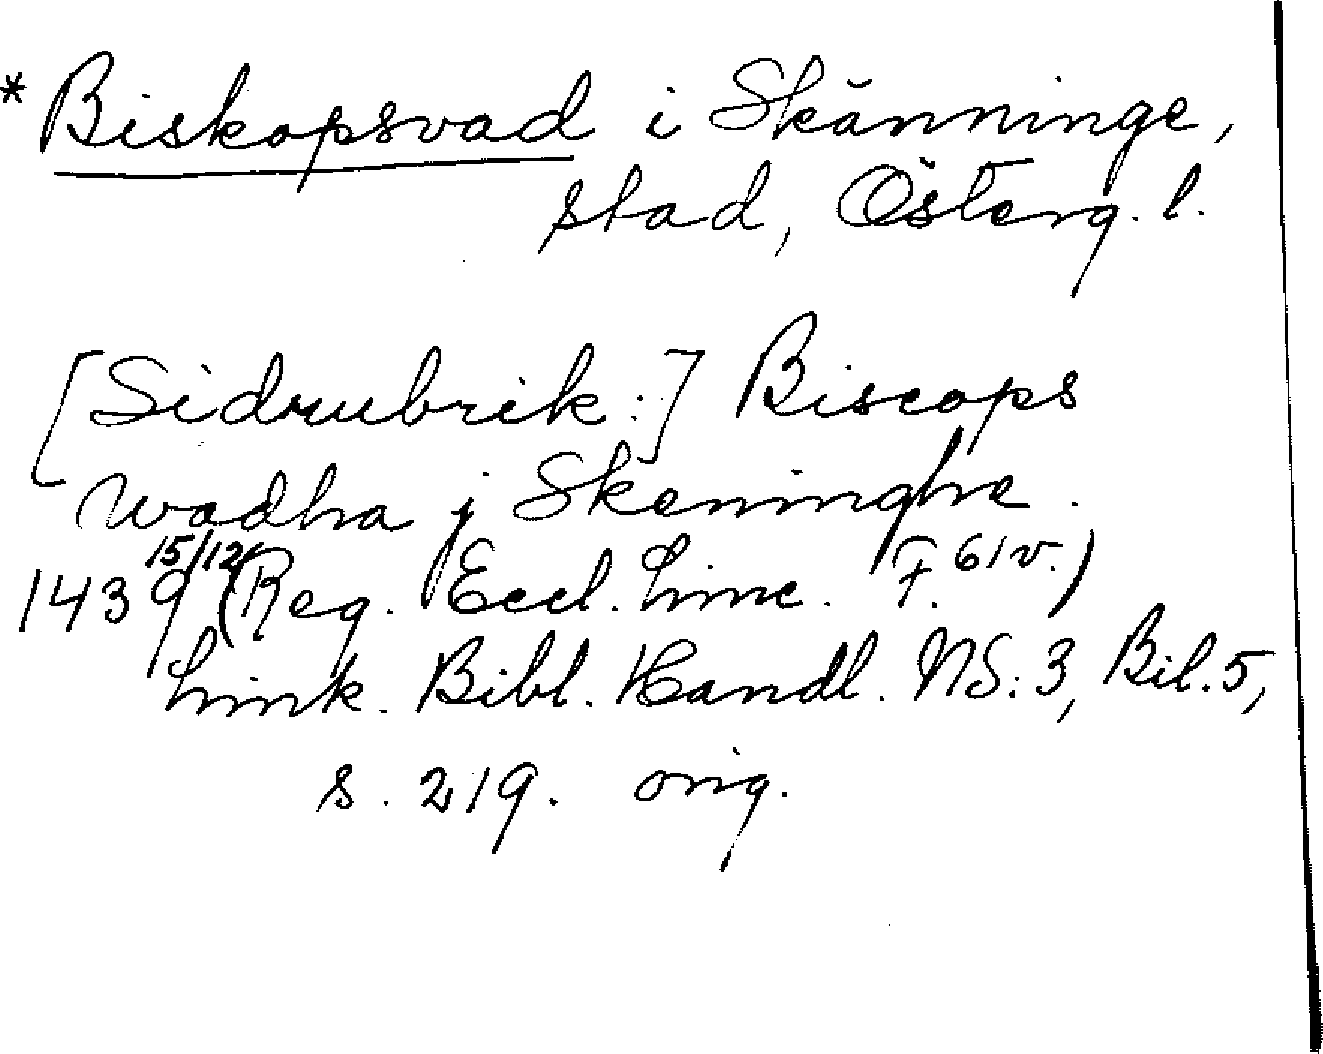 * Biskopsvad i Skänninge,
stad, Österg. l.
[Sidrubrik:] Biscops
wadha j Skeninghe.
1439 15/12 (Reg. Eccl. Linc. F. 61v.)
Link. Bibl. Handl. NS: 3, Bil. 5,
s. 219. orig.